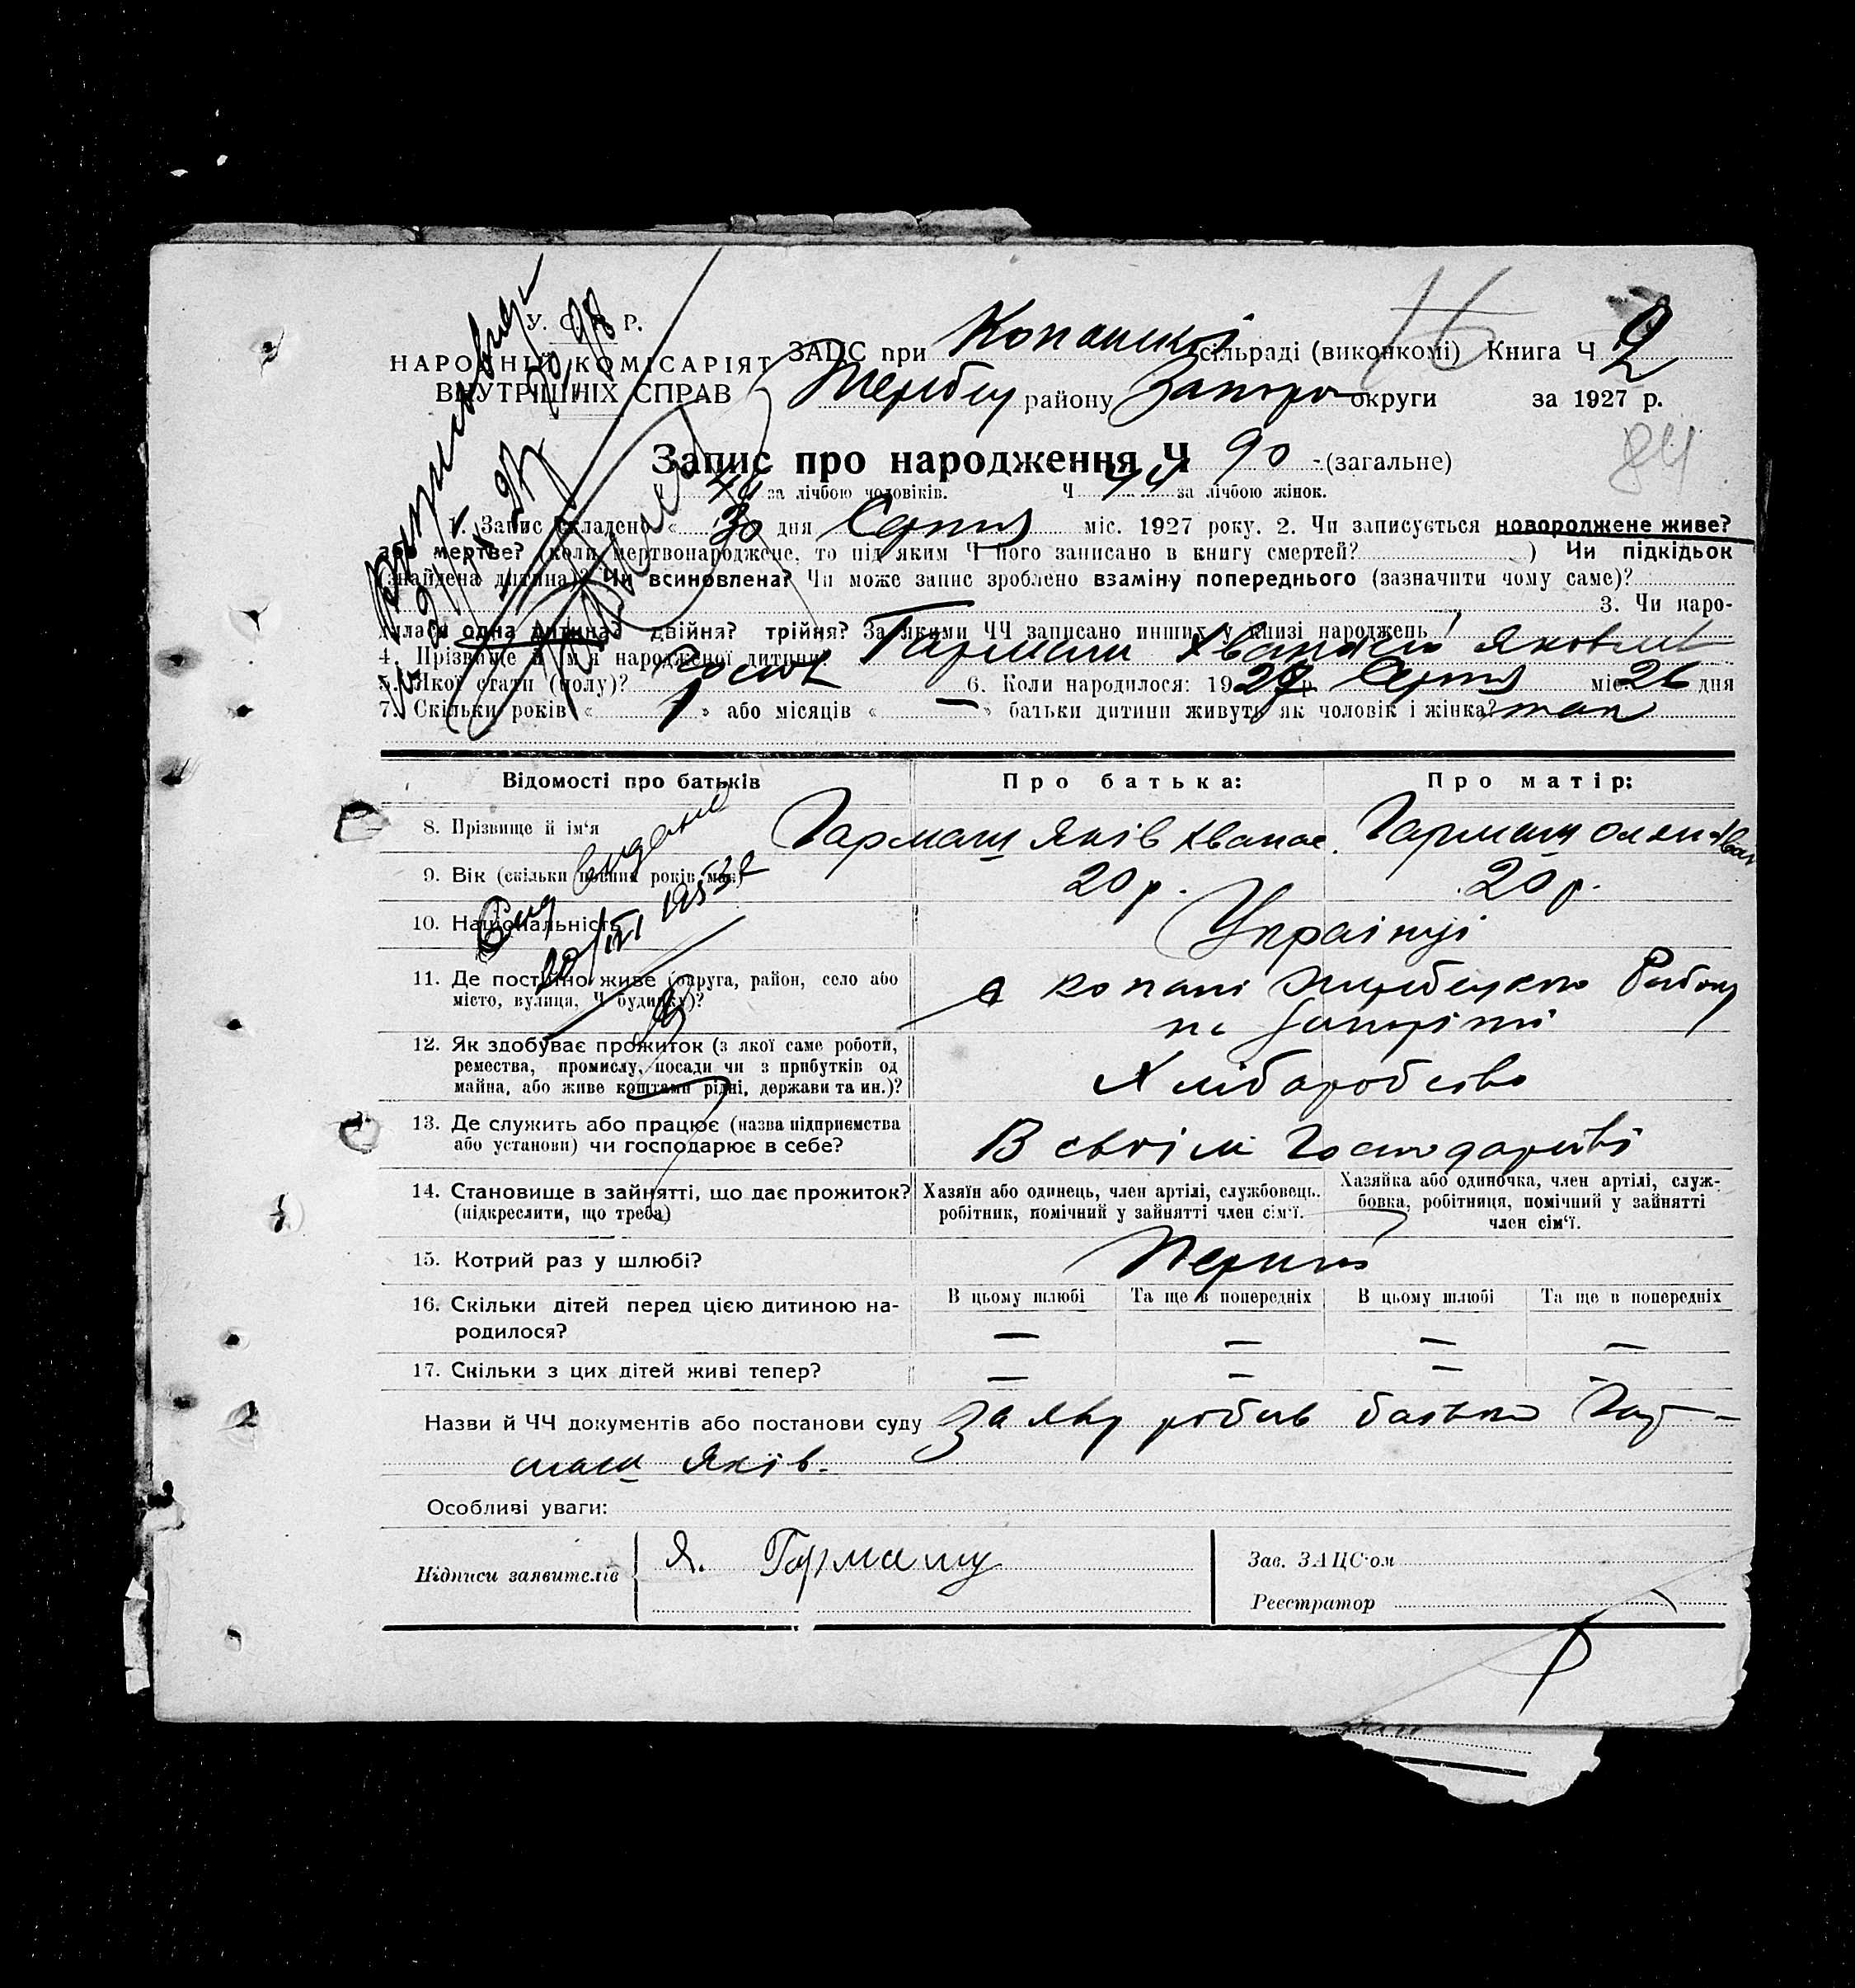 У. С. Р. Р.
НАРОДНІЙ КОМІСАРІЯТ
ВНУТРІШНІХ СПРАВ
ЗАЦС при Копанській сільраді (виконкомі) Книга Ч 2
району Запоро округи за 1927 р.
84
Запис про народження Ч 90 - (загальне)
Ч за лічбою чоловіків. Ч 44 за лічбою жінок.
1. Запис складено « 30 дня Серпня міс. 1927 року. 2. Чи записується новороджене живе?
або мертве? (коли мертвонароджене, то під яким Ч його записано в книгу смертей? ) Чи підкідьок
(знайдена дитина)? Чи всиновлена? Чи може запис зроблено взаміну попереднього (зазначити чому саме)?
3. Чи наро-
дилася одна дитина? двійня? трійня? За якими ЧЧ записано инших у книзі народжень
4. Прізвище й ім'я народженої дитини: Гармаш
5. Якої стати (полу)? 6. Коли народилося: 1927 р. Серпня міс. 26 дня
7. Скільки років « 1 » або місяців « — » батьки дитини живуть як чоловік і жінка? так
Відомості про батьків Про батька: Про матір:
8. Прізвище й ім'я Гармаш Яків Гармаш
9. Вік (скільки повних років має) 20 р. 20 р.
10. Національність Українці
11. Де постійно живе (округа, район, село або
місто, вулиця, Ч будинку)?
с Копані Району
12. Як здобуває прожиток (з якої саме роботи,
ремества, промислу, посади чи з прибутків од
майна, або живе коштами рідні, держави та ин.)?
Хліборобство
13. Де служить або працює (назва підприємства
або установи) чи господарює в себе?
В своїм Господарстві
14. Становище в зайнятті, що дає прожиток?
(підкреслити, що треба)
Хазяїн або одинець, член артілі, службовець.
робітник, помічний у зайнятті член сім'ї.
Хазяйка або одиночка, член артілі, служ-
бовка, робітниця, помічний у зайнятті
член сім'ї.
15. Котрий раз у шлюбі? Перший
16. Скільки дітей перед цією дитиною на-
родилося?
В цьому шлюбі Та ще в попередніх В цьому шлюбі Та ще в попередніх
— — — —
17. Скільки з цих дітей живі тепер? — — — -
Назви й ЧЧ документів або постанови суду Заяву робив батько Гар-
маш Яків.
Особливі уваги:
Підписи заявителів Я. Гармаш
Зав. ЗАЦС'ом
Реєстратор